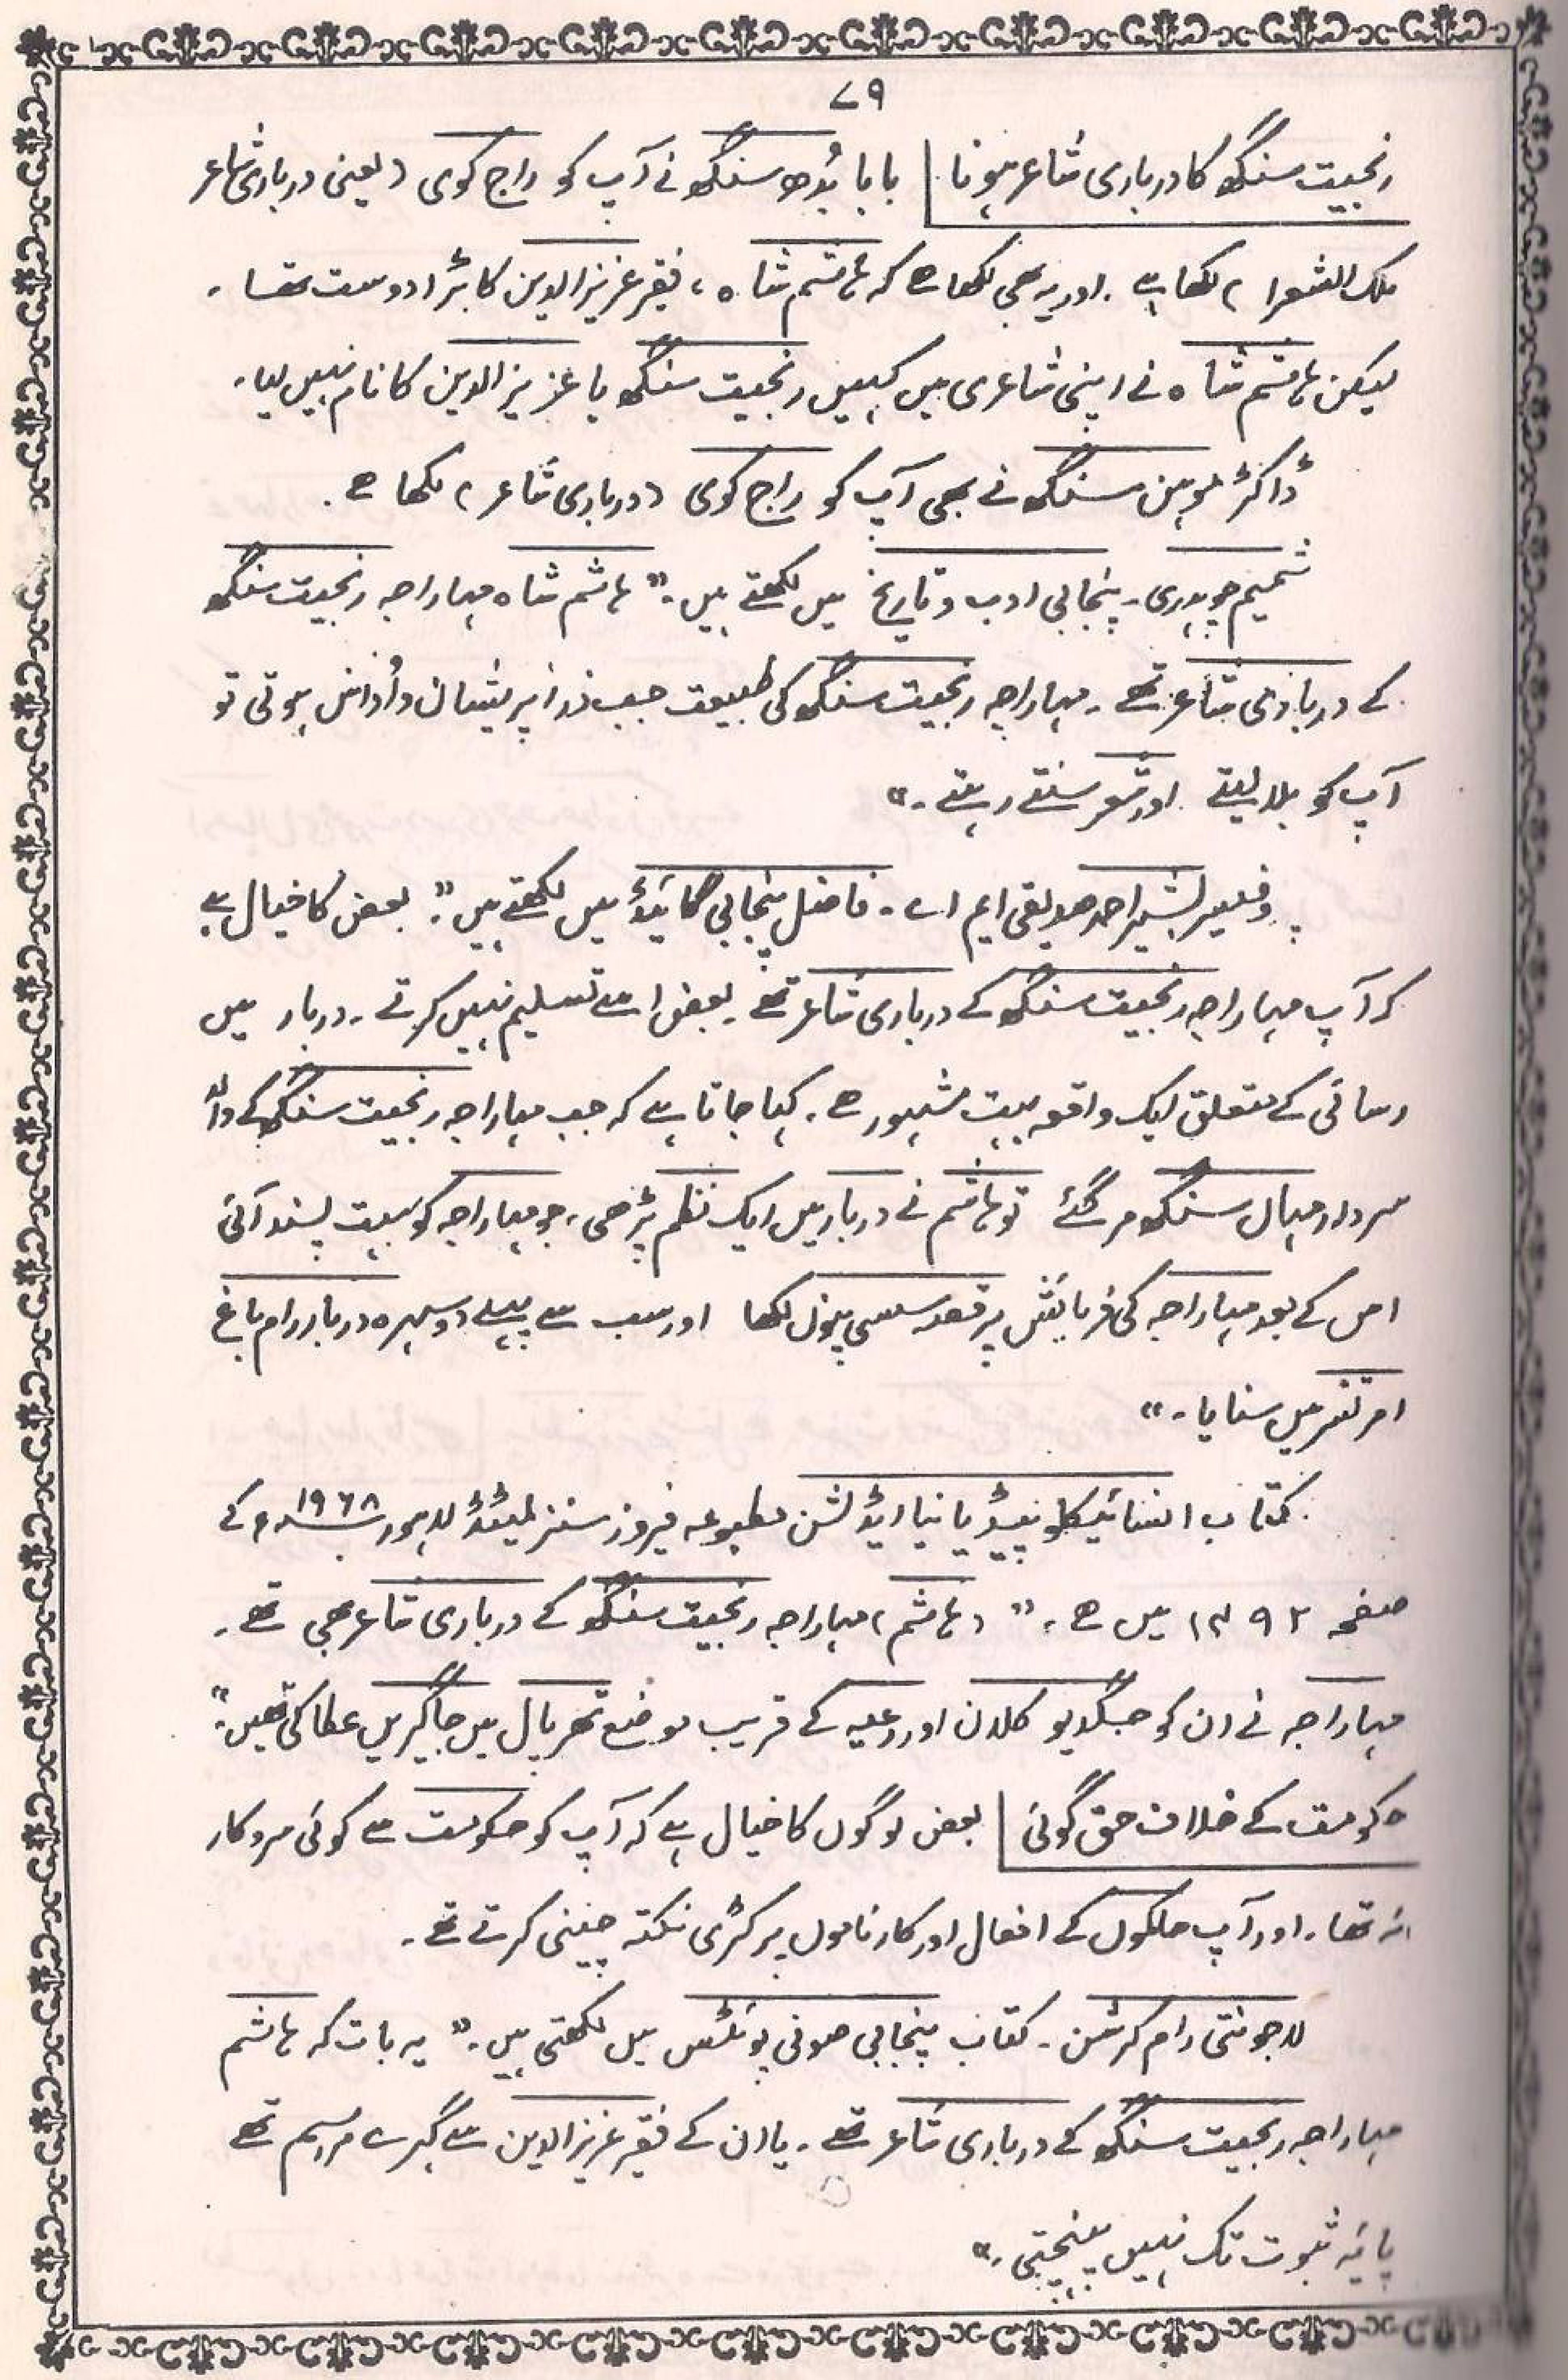 ۷۹
رنجیت سنگھ کا درباری شاعر ہونا | بابا بُدھ سنگھ نے آپ کو راج کوی (یعنی درباری شاعر
ملک الشعرا) لکھا ہے۔ اور یہ بھی لکھا ہے کہ ہاشم شاہ، فقیر عزیز الدین کا بڑا دوست تھا۔
لیکن ہاشم شاہ نے اپنی شاعری میں کہیں رنجیت سنگھ یا عزیز الدین کا نام نہیں لیا۔
ڈاکٹر موہن سنگھ نے بھی آپ کو راج کوی (درباری شاعر) لکھا ہے۔
شمیم چوہدری۔ پنجابی ادب و تاریخ میں لکھتے ہیں۔" ہاشم شاہ مہاراجہ رنجیت سنگھ
کے درباری شاعر تھے۔ مہاراجہ رنجیت سنگھ کی طبیعت جب ذرا پریشان و اُداس ہوتی تو
آپ کو بلا لیتے اور شعر سنتے رہتے۔"
پروفیسر بشیر احمد صدیقی ایم اے۔ فاضل پنجابی گائیڈ میں لکھتے ہیں"۔ بعض کا خیال ہے
کہ آپ مہاراجہ رنجیت سنگھ کے درباری شاعر تھے۔ بعض اسے تسلیم نہیں کرتے۔ دربار میں
رسائی کے متعلق ایک واقعہ بہت مشہور ہے۔ کہا جاتا ہے کہ جب مہاراجہ رنجیت سنگھ کے والد
سردار مہاں سنگھ مر گئے تو ہاشم نے دربار میں ایک نظم پڑھی، جو مہاراجہ کو بہت پسند آئی
اس کے بعد مہاراجہ کی فرمائش پر قصہ سسی پنوں لکھا اور سب سے پہلے دوسہرہ دربار رام باغ
امرتسر میں سنایا۔"
کتاب انسائیکلو پیڈیا نیا ایڈیشن مطبوعہ فیروز سنز لمیٹڈ لاہور ۱۹۶۸ء کے
صفحہ ۱۴۹۲ میں ہے۔" (ہاشم) مہاراجہ رنجیت سنگھ کے درباری شاعر بھی تھے۔
مہاراجہ نے ان کو جگدیو کلاں اور رعیہ کے قریب موضع تھرپال میں جاگیریں عطا کی تھیں۔"
حکومت کے خلاف حق گوئی | بعض لوگوں کا خیال ہے کہ آپ کو حکومت سے کوئی سروکار
نہ تھا۔ اور آپ حاکموں کے افعال اور کارناموں پر کڑی نکتہ چینی کرتے تھے۔
لاجونتی رام کرشن۔ کتاب پنجابی صوفی پوئٹس میں لکھتی ہیں۔" یہ بات کہ ہاشم
مہاراجہ رنجیت سنگھ کے درباری شاعر تھے۔ یا ان کے فقیر عزیز الدین سے گہرے مراسم تھے
پائیہ ثبوت تک نہیں پہنچتی۔"